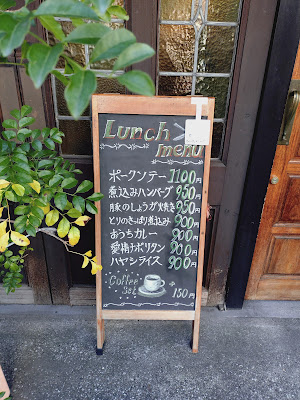 Lunch
menu
ポークソテー 1100
煮込みハンバーグ 950
豚のしょうが焼き 950
とりのさっぱり煮込み 900
おうちカレー 900
昔懐けナポリタン 900
ハヤシライス 900
Coffee
Set 150円